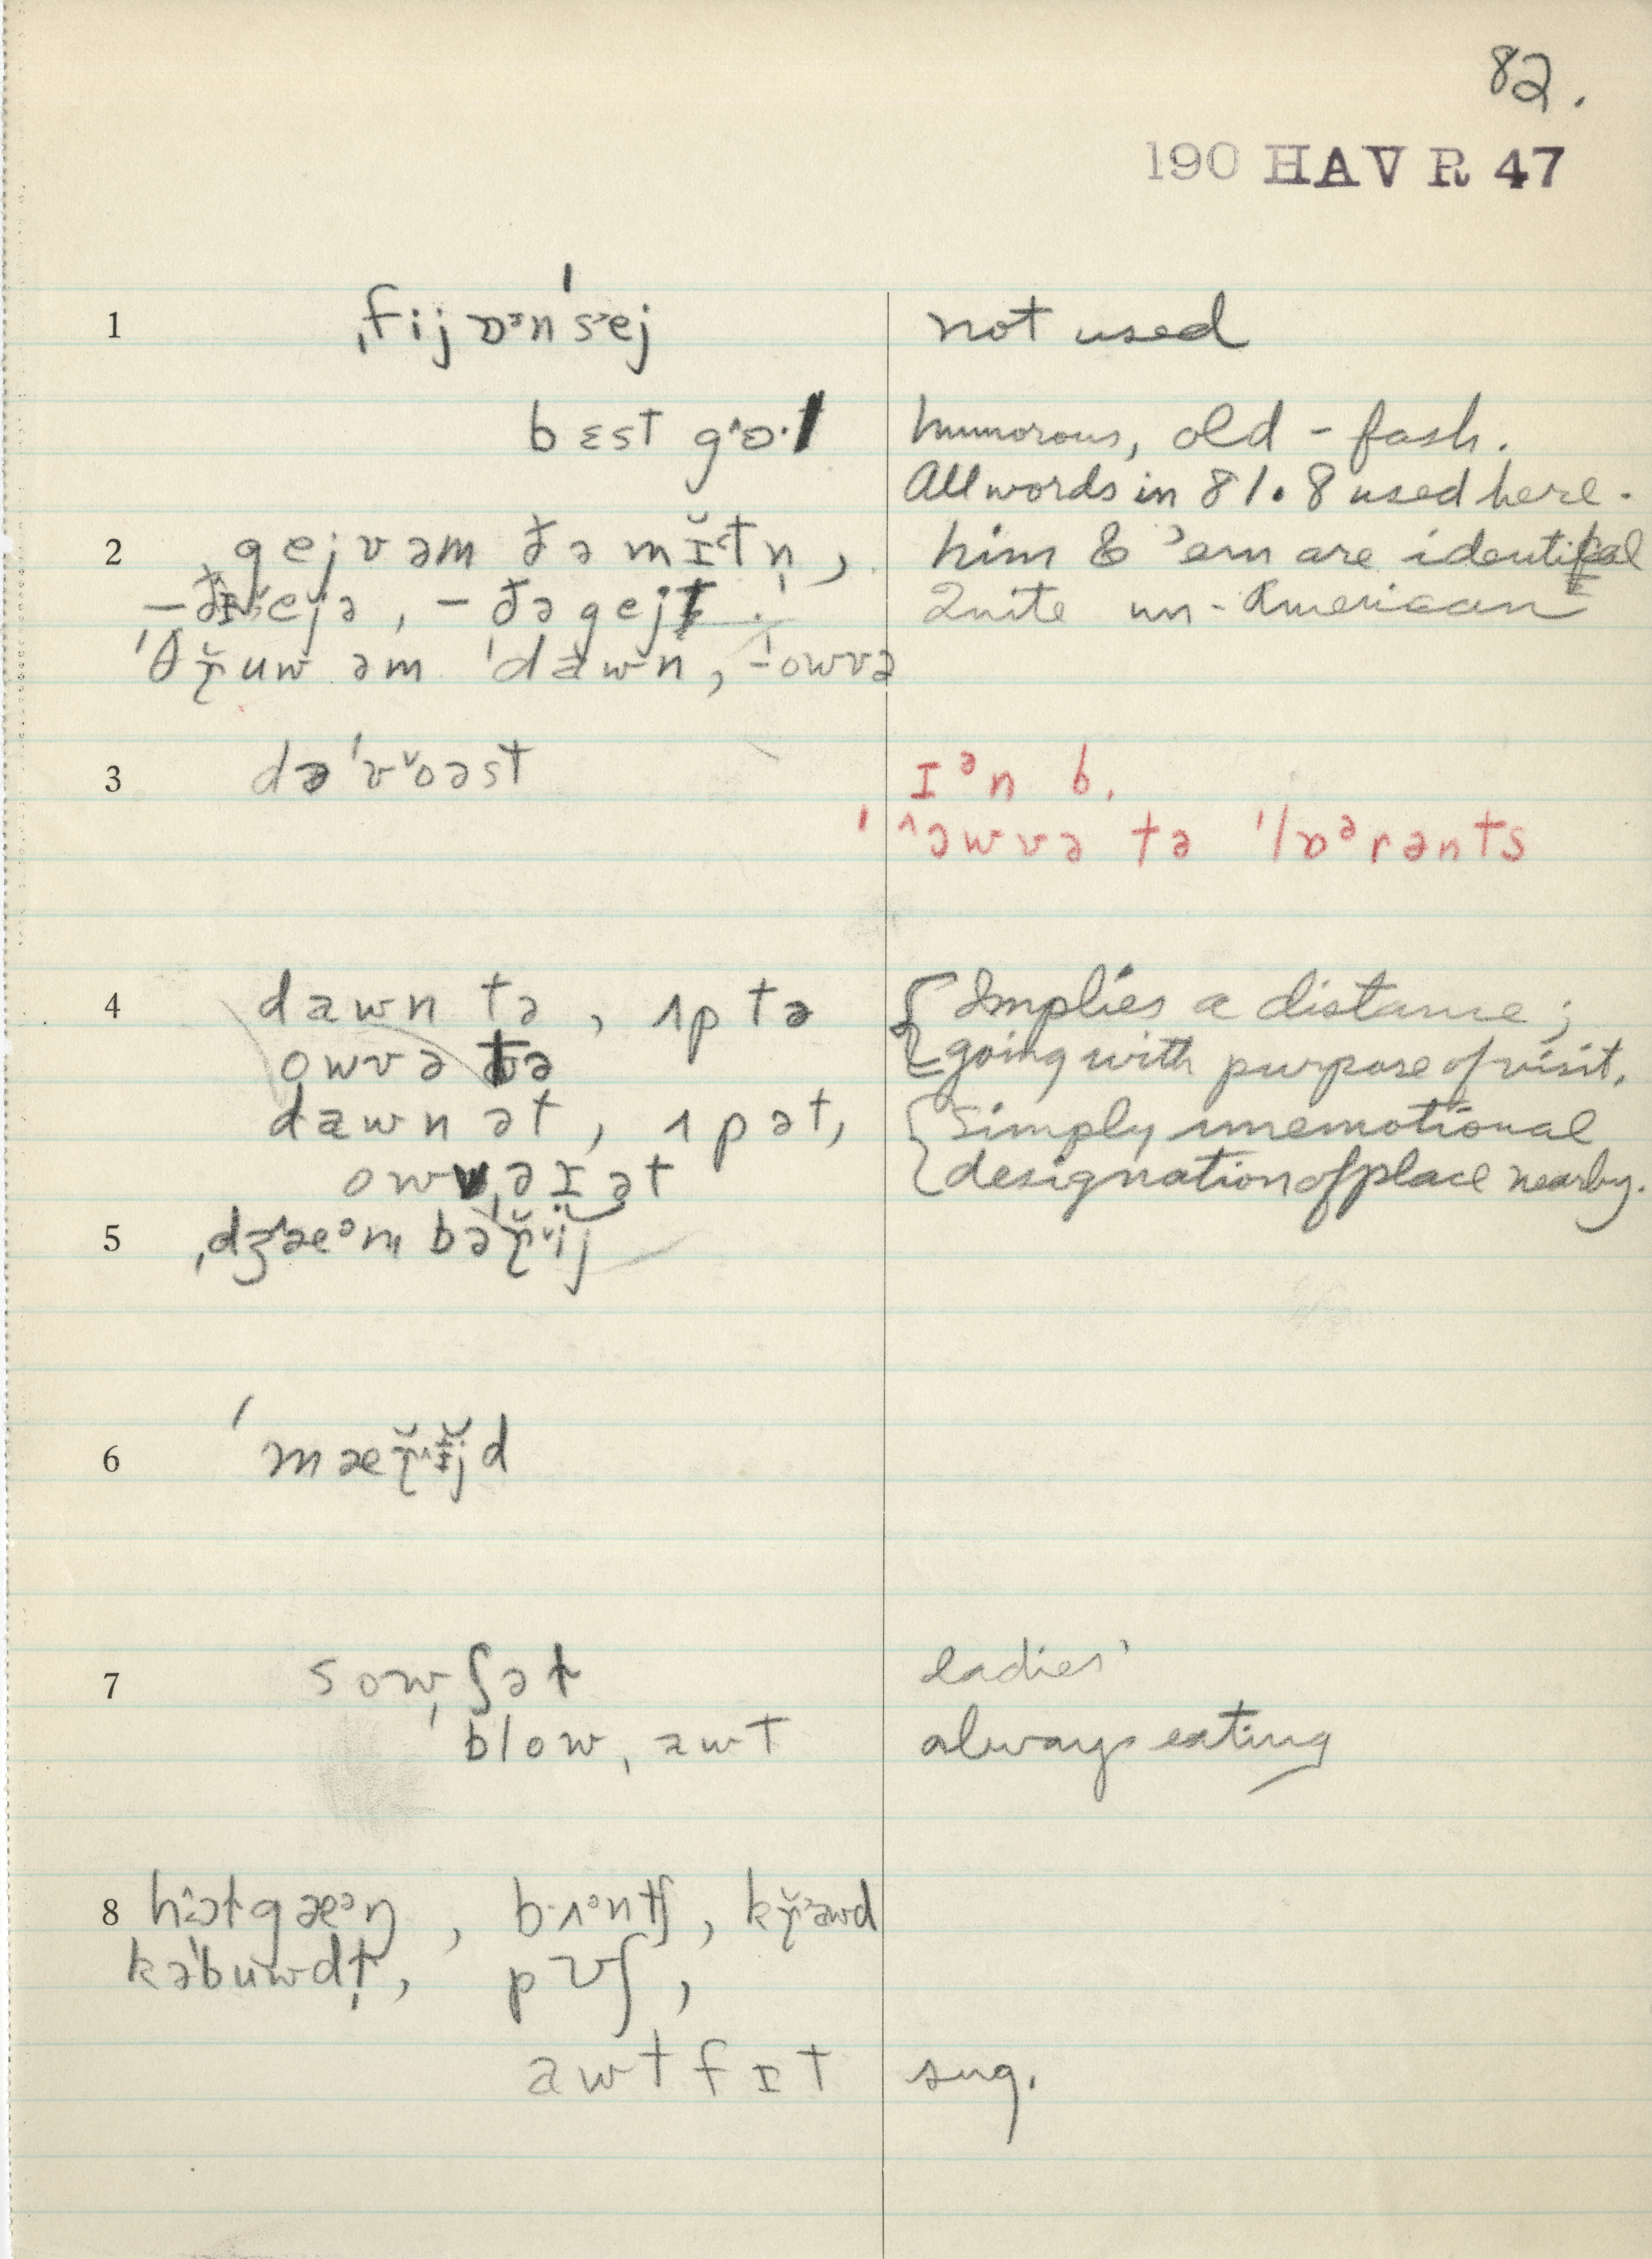 82.
190 HAV R 47
1 ˌfijɒᵊnˈs˃ej not used
bɛst gˆɒ·l humorous, old-fash.
All words in 81.8 used here.
2 gejv əm ðə mĭ˂tn̩, him & 'em are identical
– ðə gejt. Quite un-American
ˈθɾ̥̆uw əm ˈdawn, – owvə
3 dəˈvˇoəst ɪᵊn b.
ˈ^əwvə tə ˈlɒᵊrənts
4 dawn tə, ʌp tə Implies a distance;
owvə tə going with purpose of visit.
dawn ət, ʌp ət, Simply unemotional
owvəɪ ət designation of place nearby.
5 ˌdʒˆæᵊm bəˈɾ̥̆ˇij
6 ˈmæɾ̥̆ˆijd
7 sowˌʃəɫ ladies'
ˈblowˌawt always eating
8 hˆɔɫgæᵊŋ, b·ʌᵊntʃ, kɾ̥̆˃awd
kəˈbuwdɫ̩, pʊʃ,
awtfɪt sug.